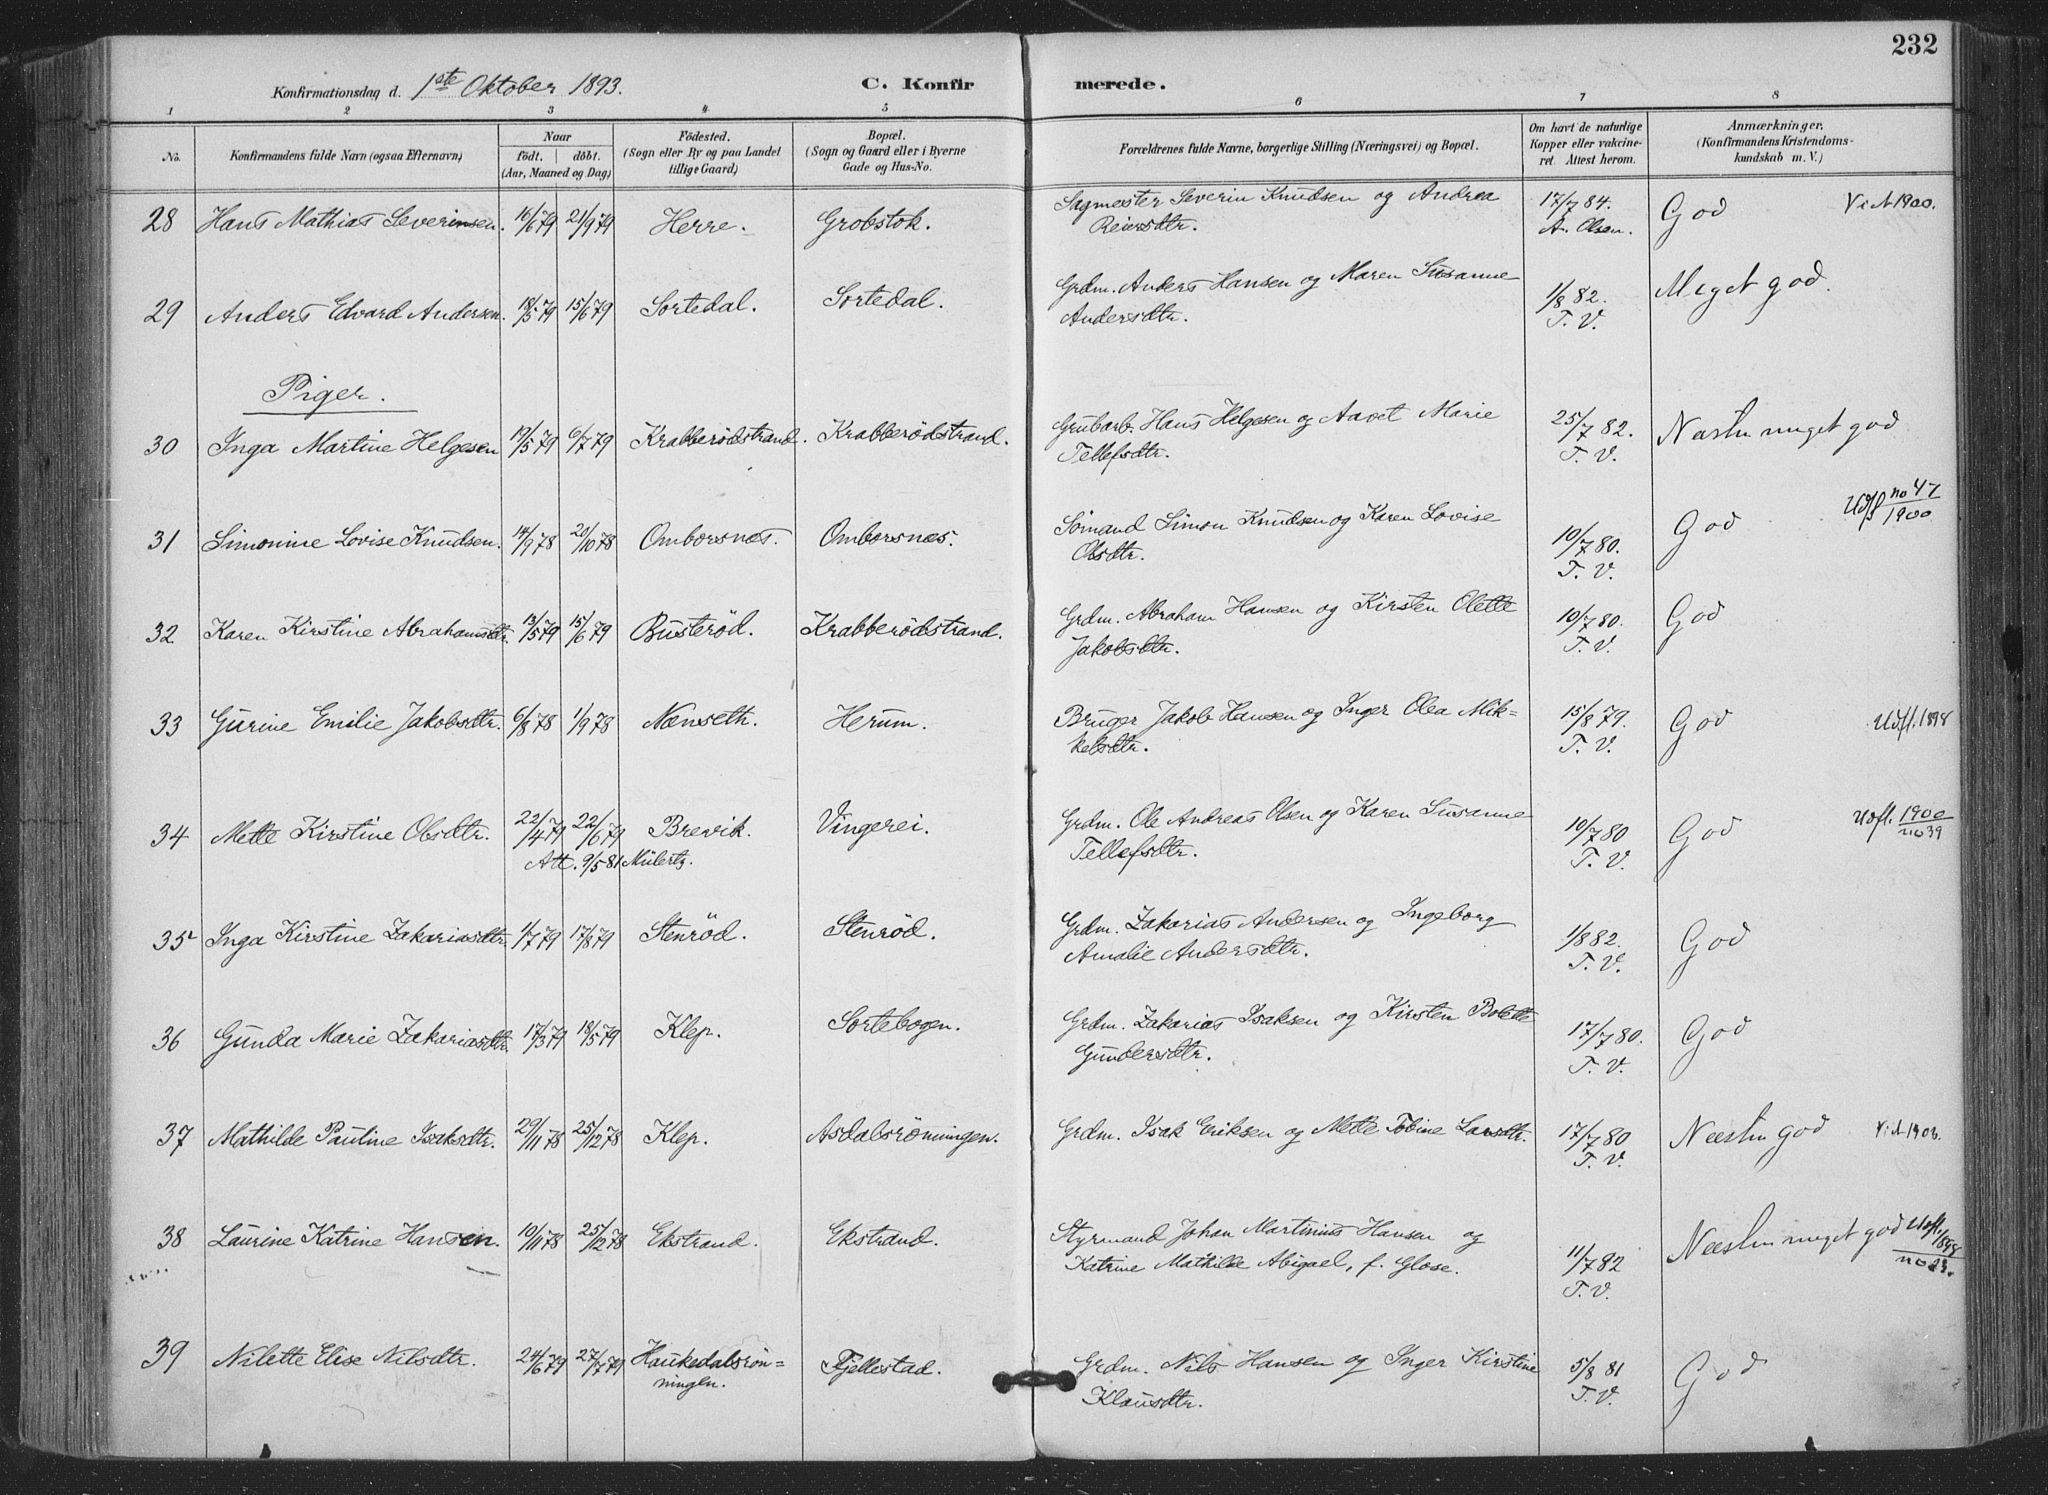 232
Konfirmationsdag d. 1ste Oktober 1893.
C. Konfirmerede.
1 2 3 4 5 6 7 8
No.
Konfirmandens fulde Navn (ogsaa Efternavn)
Naar
födt. döbt.
(Aar, Maaned og Dag)
Födested.
(Sogn eller By og paa Landet
tillige Gaard)
Bopæl.
(Sogn og Gaard eller i Byerne
Gade og Hus-No.
Forældrenes fulde Navne, borgerlige Stilling (Næringsvei) og Bopæl.
Om havt de naturlige
Kopper eller vakcine-
ret. Attest herom.
Anmærkninger.
(Konfirmandens Kristendoms-
kundskab m. V.)
28 Hans Mathias Severinsen. 16/6 79 21/9 79 Herre. Grobstok. Sagmester Severin Knudsen og Andrea 17/7 84. God Vi A 1900.
Reiersdtr. A. Olsen.
29 Anders Edvard Andersen. 18/5 79 15/6 79 Sortedal. Sortedal. Grdm. Anders Hansen og Maren Susanne 1/8 82. Meget god.
Andersdtr. T. V.
Piger.
30 Inga Martine Helgesen 19/5 79 6/7 79 Krabberödstrand. Krabberödstrand. Grubarb. Hans Helgesen og Aavet Marie 25/7 82. Næsten meget god
Tellefsdtr. T. V.
31 Simonine Lovise Knudsen. 14/9 78 20/10 78 Omborsnæs. Omborsnæs. Sömand Simon Knudsen og Karen Lovise 10/7 80. God Udfl no 47/1900
Olsdtr. T. V.
32 Karen Kirstine Abrahamsdtr. 13/5 79 15/6 79 Busteröd. Krabberödstrand. Grdm. Abraham Hansen og Kirsten Olette 10/7 80. God
Jakobsdtr. T. V.
33 Gurine Emilie Jakobsdtr. 6/8 78 1/9 78 Nænseth. Herum. Bruger Jakob Hansen og Inger Olea Mik- 15/8 79. God Udfl. 1898
kelsdtr. T. V.
34 Mette Kirstine Olsdtr. 22/4 79 22/6 79 Brevik. Vingerei. Grdm. Ole Andreas Olsen og Karen Susanne 10/7 80 God Udfl. 1900/no 39
Att. 9/5 81 Mülertz. Tellefsdtr. T. V.
35 Inga Kirstine Zakariasdtr. 1/7 79 17/8 79 Stenröd. Stenröd. Grdm. Zakarias Andersen og Ingeborg 1/8 82. God
Amalie Andersdtr. T. V.
36 Gunda Marie Zakariasdtr. 17/3 79 18/5 79 Klep. Sortebogen. Grdm. Zakarias Isaksen og Kirsten Bolette 17/7 80. God
Gundersdtr. T. V.
37 Mathilde Pauline Isaksdtr. 29/11 78 25/12 78 Klep. Asdalsröningen. Grdm. Isak Eriksen og Mette Tobine Larsdtr. 17/7 80 Næsten god
T. V.
38 Laurine Katrine Hansen. 10/11 78 25/12 78 Ekstrand. Ekstrand. Styrmand Johan Martinius Hansen og 11/7 82 Næsten meget god Udfl. 1898
Katrine Mathilde Abigael, f. Glose. T. V.
39 Nilette Elise Nilsdtr. 24/6 79 27/7 79 Haukedalsrön- Fjellestad. Grdm. Nils Hansen og Inger Kirstine 5/8 81 God
ningen. Klausdtr. T. V.